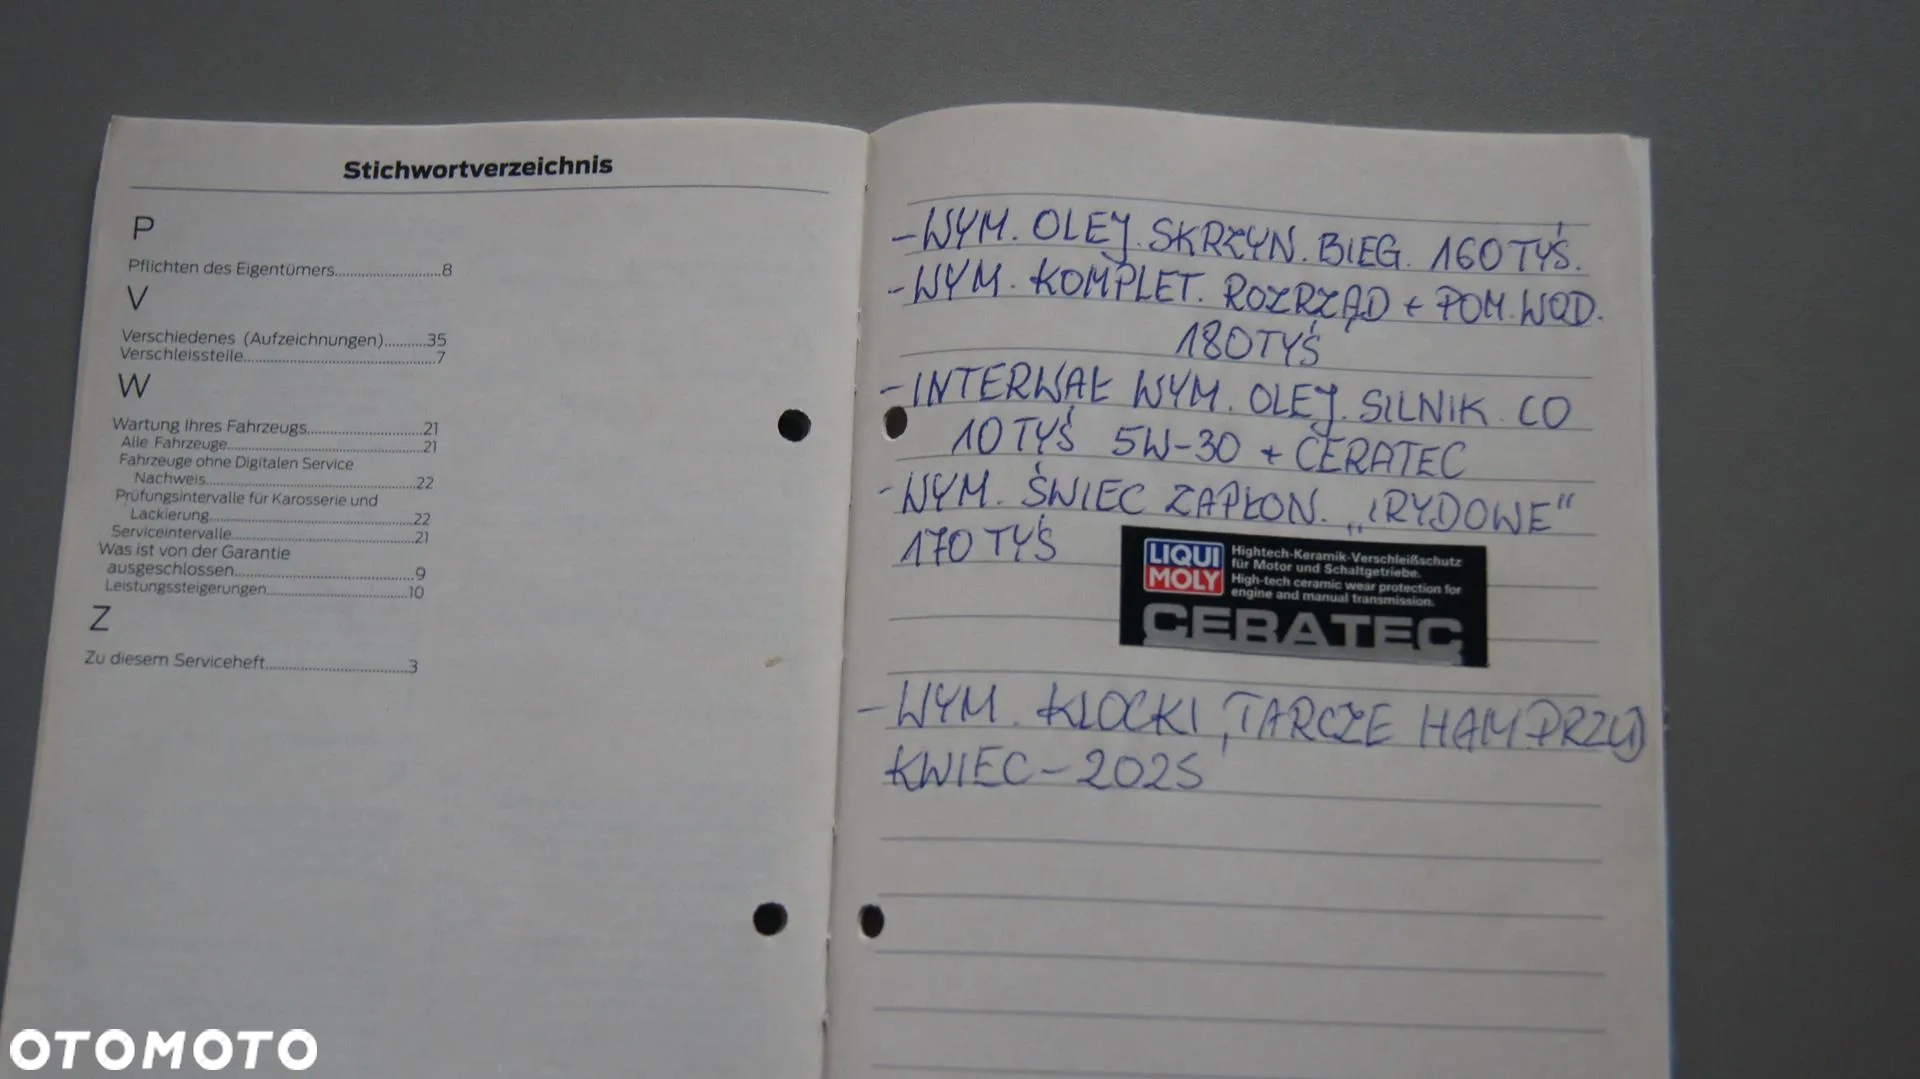 Stichwortverzeichnis
P
Pflichten des Eigentümers..........................8
V
Verschiedenes (Aufzeichnungen)..........35
Verschleissteile................................................7
W
Wartung Ihres Fahrzeugs............................21
Alle Fahrzeuge...............................................21
Fahrzeuge ohne Digitalen Service
Nachweis.....................................................22
Prüfungsintervalle für Karosserie und
Lackierung..................................................22
Serviceintervalle............................................21
Was ist von der Garantie
ausgeschlossen............................................9
Leistungssteigerungen..................................10
Z
Zu diesem Serviceheft..................................3
- WYM. OLEJ. SKRZYN. BIEG. 160 TYŚ.
- WYM. KOMPLET. ROZRZĄD + POM. WOD.
180 TYŚ
- INTERWAŁ WYM. OLEJ. SILNIK. CO
10 TYŚ 5W-30 + CERATEC
- WYM. ŚWIEC ZAPŁON. „IRYDOWE"
170 TYŚ
LIQUI MOLY
Hightech-Keramik-Verschleißschutz
für Motor und Schaltgetriebe.
High-tech ceramic wear protection for
engine and manual transmission.
CERATEC
- WYM. KLOCKI, TARCZE HAM PRZÓD
KWIEC - 2025
OTOMOTO